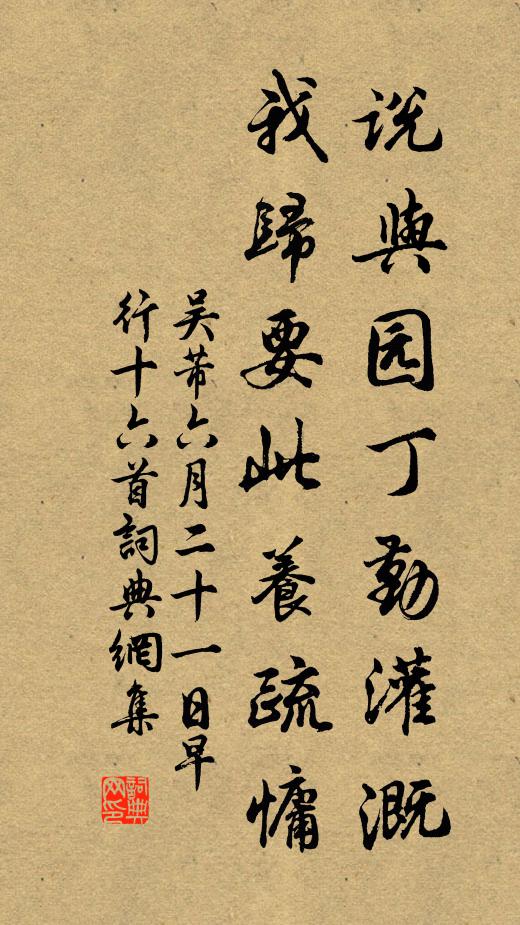 說與园丁勤灌溉
我歸要此養疏慵
吴芾六月二十一日早
行十六首詞典網集
詞典
网印